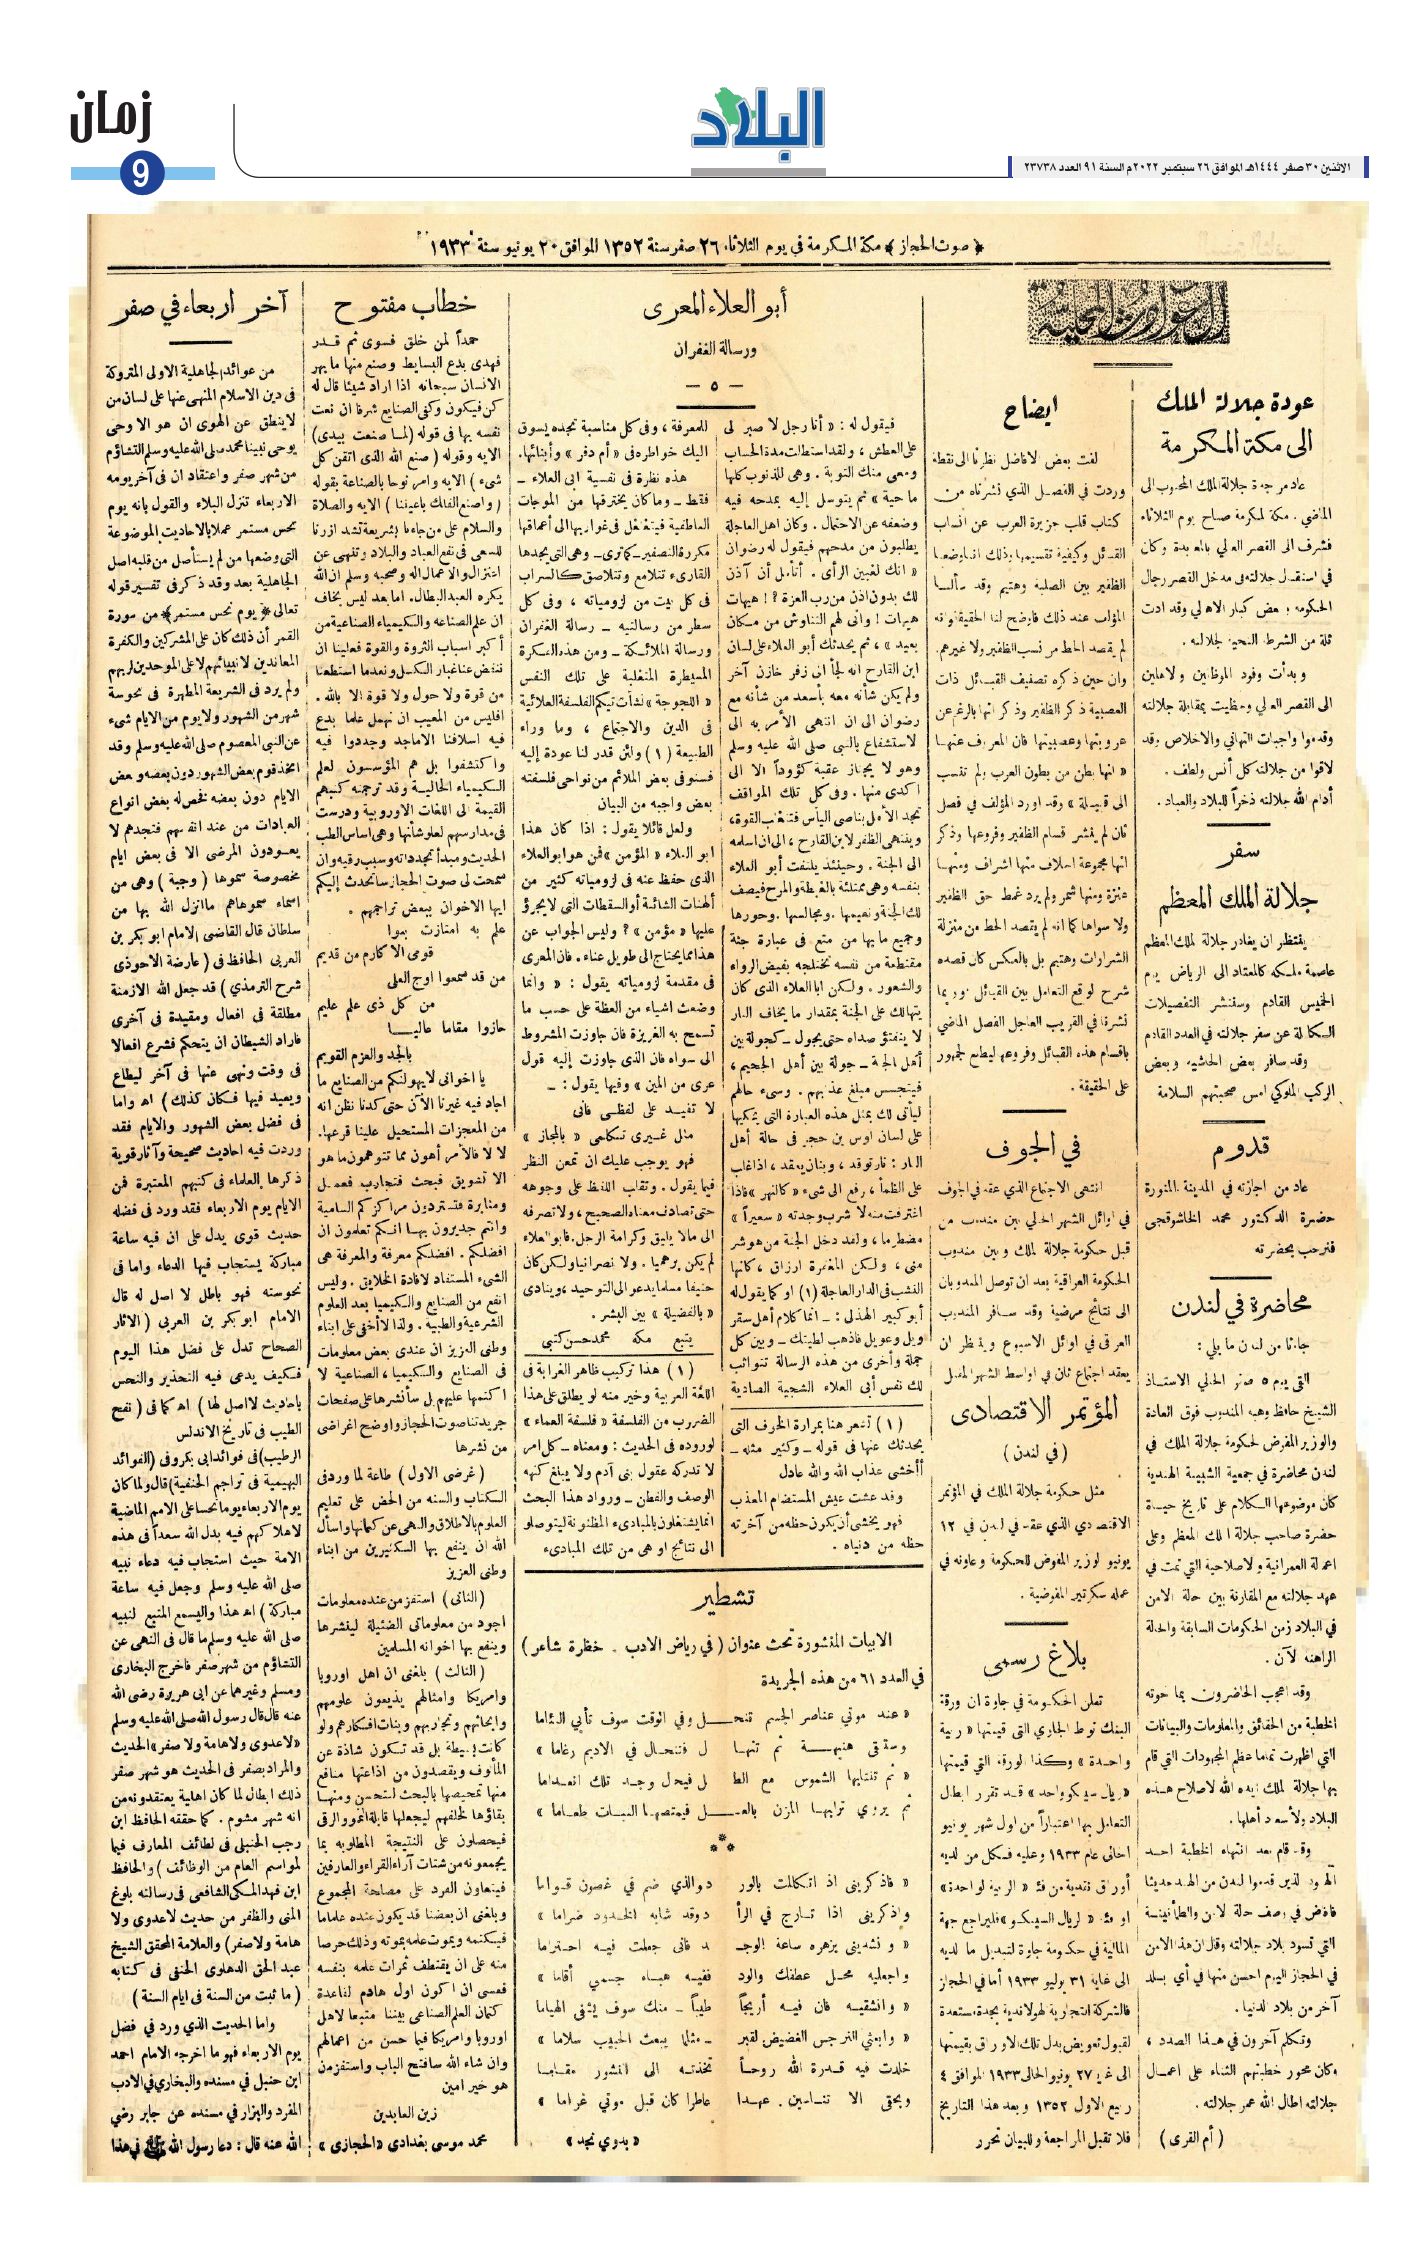 زمان
9
البلاد
الاثنين ٣٠ صفر ١٤٤٤هـ الموافق ٢٦ سبتمبر ٢٠٢٢م السنة ٩١ العدد ٢٣٧٣٨
﴿ صوت الحجاز ﴾ مكة المكرمة في يوم الثلاثاء ٢٦ صفر سنة ١٣٥٢ الموافق ٢٠ يونيو سنة ١٩٣٣
الحوادث المحلية
عودة جلالة الملك
الى مكة المكرمة
الماضي . مكة المكرمة صباح يوم الثلاثاء
فشرف الى القصر العالي بالمعابدة وكان
في استقبال جلالته في مدخل القصر رجال
الحكومة وبعض كبار الاهالي وقد ادت
ثلة من الشرطة التحية لجلالته .
وبدأت وفود الموظفين والاهلين
الى القصر العالي وحظيت بمقابلة جلالته
وقدموا واجبات التهاني والاخلاص وقد
لاقوا من جلالته كل أنس ولطف .
أدام الله جلالته ذخراً للبلاد والعباد .
سفر
جلالة الملك المعظم
ينتظر ان يغادر جلالة الملك المعظم
عاصمة ملكه كالمعتاد الى الرياض يوم
الخميس القادم وسننشر التفصيلات
الكاملة عن سفر جلالته في العدد القادم
وقد سافر بعض الحاشية وبعض
الركب الملوكي امس صحبتهم السلامة
قدوم
عاد من اجازته في المدينة المنورة
حضرة الدكتور محمد الخاشوقجي
فنرحب بحضرته
محاضرة في لندن
جاءنا من لندن ما يلي :
القى يوم ٥ صفر الحالي الاستاذ
الشيخ حافظ وهبه المندوب فوق العادة
والوزير المفوض لحكومة جلالة الملك في
لندن محاضرة في جمعية الشبيبة الهندية
كان موضوعها الكلام على تاريخ حياة
حضرة صاحب جلالة الملك المعظم وعلى
اعماله العمرانية والاصلاحية التي تمت في
عهد جلالته مع المقارنة بين حالة الامن
في البلاد زمن الحكومات السابقة والحالة
الراهنة الآن .
وقد اعجب الحاضرون بما حوته
الخطبة من الحقائق والمعلومات والبيانات
التي اظهرت تماما عظم المجهودات التي قام
بها جلالة الملك أيده الله لاصلاح هذه
البلاد ولأسعاد أهلها .
وقد قام بعد انتهاء الخطبة احد
الهنود الذين قدموا لندن من الهند حديثا
فأفاض في وصف حالة الامن والطمأنينة
التي تسود بلاد جلالته وقال ان هذا الامن
في الحجاز اليوم احسن منها في أي بلد
آخر من بلاد الدنيا .
وتكلم آخرون في هذا الصدد ،
وكان محور خطبتهم الثناء على اعمال
جلالته اطال الله عمر جلالته .
( أم القرى )
ايضاح
لفت بعض الافاضل نظرنا الى نقطة
وردت في الفصل الذي نشرناه من
كتاب قلب جزيرة العرب عن انساب
القبائل وكيفية تقسيمها
الظفير بين الصلبة وهتيم وقد سألنا
المؤلف عند ذلك فاوضح لنا الحقيقة وانه
لم يقصد الحط من نسب الظفير ولا غيرهم
وان حين ذكره تصنيف القبائل ذات
العصبية ذكر الظفير وذكر انها بالرغم عن
عروبتها وعصبيتها فان المعروف عنها
« انها بطن من بطون العرب ولم تنسب
الى قبيلة » وقد اورد المؤلف في فصل
ثان لم ينشر قسام الظفير وفروعها وذكر
انها مجموعة احلاف منها اشراف ومنها
عنزة ومنها شمر ولم يرد غمط حق الظفير
ولا سواها كما انه لم يقصد الحط من منزلة
الشرارات وهتيم بل بالعكس كان قصده
شرح لوقع التعامل بين القبائل وربما
نشرنا في القريب العاجل الفصل الماضي
باقسام هذه القبائل وفروعها ليطلع الجمهور
على الحقيقة .
في الجوف
انتهى الاجتماع الذي عقد في الجوف
في اوائل الشهر الحالي بين مندوب من
قبل حكومة جلالة الملك وبين مندوب
الحكومة العراقية بعد ان توصل المندوبان
الى نتائج مرضية وقد سافر المندوب
العراقي في اوائل الاسبوع وينتظر ان
يعقد اجتماع ثان في اواسط الشهر المقبل
المؤتمر الاقتصادى
( في لندن )
مثل حكومة جلالة الملك في المؤتمر
الاقتصادي الذي عقد في لندن في ١٢
يونيو الوزير المفوض للحكومة وعاونه في
عمله سكرتير المفوضية .
بلاغ رسمى
تعلن الحكومة في جاوة ان ورقة
البنك نوط الجاوي التي قيمتها « ربية
واحدة » وكذا الورقة التي قيمتها
« ريال سيكو واحد » قد تقرر ابطال
التعامل بها اعتباراً من اول شهر يونيو
الحالى عام ١٩٣٣ وعليه فكل من لديه
أوراق نقدية من فئة « الربية الواحدة»
او فئة « الريال السيكو » فليراجع جهة
المالية في حكومة جاوة لتبديل ما لديه
الى غاية ٣١ يوليو ١٩٣٣ أما في الحجاز
فالشركة التجارية الهولاندية بجدة مستعدة
لقبول تعويض بدل تلك الاوراق بقيمتها
الى غاية ٢٧ يونيو الحالى ١٩٣٣ الموافق ٤
ربيع الاول ١٣٥٢ وبعد هذا التاريخ
فلا تقبل المراجعة وللبيان تحرر
أبو العلاء المعرى
ورسالة الغفران
— ٥ —
فيقول له : « أنا رجل لا صبر لى
على العطش ، ولقد استطلت مدة الحساب
ومعى منك التوبة . وهى للذنوب كلها
ماحية » ثم يتوسل إليه بمدحه فيه
وضعفه عن الاحتمال . وكان اهل العاجلة
يطلبون من مدحهم فيقول له رضوان
« انك لغبين الرأى . أتأمل أن آذن
لك بدون اذن من رب العزة ؟ ! هيهات
هيهات ! وانى لهم التناوش من مكان
بعيد » ، ثم يحدثك أبو العلاء على لسان
ابن القارح انه لجأ الى زفر خازن آخر
ولم يكن شأنه معه بأسعد من شأنه مع
رضوان الى ان انتهى الأمر به الى
الاستشفاع بالنبى صلى الله عليه وسلم
وهو لا يجتاز عقبة كؤوداً الا الى
اكدى منها . وفى كل تلك المواقف
تجد الأمل بناصى اليأس فتتغلب القوة،
وينتهى الظفر لابن القارح ، الى ان اسلمه
الى الجنة . وحينئذ يلتفت أبو العلاء
بنفسه وهى ممتلئة بالغبطة والمرح فيصف
لك الجنة ونعيمها . ومجالسها . وحورها
وجميع ما بها من متع فى عبارة جثة
مقتطعة من نفسه تختلجه بفيض الرواء
والشعور . ولكن ابا العلاء الذى كان
يتهالك على الجنة بمقدار ما يخاف النار
لا ينفتؤ صداه حتى يجول ـ كجولة بين
أهل الجنة ـ جولة بين أهل الجحيم ،
فيتجسس مبلغ عذابهم . وسىء حالهم
ليأتى لك بمثل هذه العبارة التى يحكيها
على لسان اوس بن حجر فى حالة أهل
النار : نار توقد ، وبنان يعقد ، اذا غلب
على الظمأ ، رفع الى شىء « كالنهر » فاذا
اغترفت منه لا شرب وجدته « سعيراً »
مضطرما ، ولقد دخل الجنة من هو شر
منى ، ولكن المغفرة ارزاق ، كأنها
النشب فى الدار العاجلة (١) او كما يقول له
أبو كبير الهذلى : ـ انما كلام أهل سقر
ويل وعويل فاذهب لطيتك ـ وبين كل
جملة وأخرى من هذه الرسالة تتواثب
لك نفس أبى العلاء الشجية الصادية
( ١ ) أتشعر هنا بمرارة الخرف التى
يحدثك عنها فى قوله ـ وكثير مثله ـ
أأخشى عذاب الله والله عادل
وقد عشت عيش المستضام المعذب
فهو يخشى أن يكون حظه من آخرته
حظه من دنياه .
للمعرفة ، وفى كل مناسبة تجده يسوق
اليك خواطره فى « أم دفر » وأبنائها.
هذه نظرة فى نفسية ابى العلاء ـ
فقط ـ وما كان يخترقها من الموجات
العاطفية فيتغلغل فى غواربها الى أعماقها
مكررة التصفير ـ كما ترى ـ وهى التى يجدها
القارىء تتلامع وتتلاصق كالسراب
فى كل بيت من لزومياته ، وفى كل
سطر من رسالتيه ـ رسالة الغفران
ورسالة الملائكة ـ ومن هذه الفكرة
المسيطرة المتغلبة على تلك النفس
« اللجوجة » نشأت تيكم الفلسفة العلائية
فى الدين والاجتماع ، وما وراء
الطبيعة (١) ولئن قدر لنا عودة إليه
فسنوفى بعض الملائم من نواحى فلسفته
بعض واجبه من البيان
ولعل قائلا يقول : اذا كان هذا
ابو العلاء « المؤمن » فمن هو ابو العلاء
الذى حفظ عنه فى لزومياته كثير من
الهنات الشائنة أو السقطات التى لا يجرؤ
عليها « مؤمن » ؟ وليس الجواب عن
هذا مما يحتاج الى طويل عناء . فان المعرى
فى مقدمة لزومياته يقول : « وانما
وضعت اشياء من العظة على حسب ما
تسمح به الغريزة فان جاوزت المشروط
الى سواه فان الذى جاوزت إليه قول
عرى من المين » وفيها يقول : ـ
لا تفيد على لفظى فأنى
مثل غيرى تكلمى « بالمجاز »
فهو يوجب عليك ان تمعن النظر
فيما يقول . وتقلب اللفظ على وجوهه
حتى تصادف معناه الصحيح ، ولا تصرفه
الى مالا يليق وكرامة الرجل. فأبو العلاء
لم يكن برهميا . ولا نصرانيا ولكن كان
حنيفا مسلما يدعو الى التوحيد ، وينادى
« بالفضيلة » بين البشر .
يتبع مكة محمد حسن كتبى
( ١ ) هذا تركيب ظاهر الغرابة فى
اللغة العربية وخير منه لو يطلق على هذا
الضرب من الفلسفة « فلسفة العماء »
لوروده فى الحديث : ومعناه ـ كل امر
لا تدركه عقول بنى آدم ولا يبلغ كنهه
الوصف والفطن ـ ورواد هذا البحث
انما يشتغلون بالمبادىء المظنونة ليتوصلوا
الى نتائج او هى من تلك المبادىء
تشطير
الابيات المنشورة تحت عنوان ( في رياض الادب . خظرة شاعر )
في العدد ٦١ من هذه الجريدة
« عند موتي عناصر الجسم تنحـــل وفي الوقت سوف تأبي التئاما
وستقى هنيهة ثم تنهـــال فتنحال في الاديم رغاما »
« ثم تنتابها الشموس مع الطـــل فيحول وجد تلك انعداما
ثم يروي ترابها المزن بالعـــل فيمتصها النبات طعاما »
« فاذكريني اذ اتكالمت بالورد والذي ضم في غصون قواما
واذكرينى اذا تأرج في الرأد وقد شابه الخدود ضراما »
« و نشديني بزهره ساعة الوجـد فانى جعلت فيه احتراما
واجعليه محل عطفك والود ففيه هباء جسمي أقاما »
« وانشقيه فان فيه أريجاً طيباً ـ منك سوف يشفى الهياما
« وابعثي النرجس الغضيض لقبر ـ مثلما يبعث الحبيب سلاما »
خلدت فيه قدرة الله روحاً تخذته الى النشور مقاما
وبحقى الا تناسين عهدا عاطرا كان قبل موتي غراما »
« بدوي نجد »
خطاب مفتوح
حمداً لمن خلق فسوى ثم قدر
فهدى بدع البسايط وصنع منها ما يبهر
الانسان سبحانه اذا اراد شيئا قال له
كن فيكون وكفى الصنايع شرفا ان نعت
نفسه بها فى قوله (لما صنعت بيدى)
الايه وقوله ( صنع الله الذى اتقن كل
شىء ) الايه وامر نوحا بالصناعة بقوله
( واصنع الفلك باعيننا ) الايه والصلاة
والسلام على من جاءنا بشريعة تشد ازرنا
للسعى فى نفع العباد والبلاد وتنهى عن
انتزال والاعمال اله وصحبه وسلم ان الله
يكره العبد البطال. اما بعد ليس بخاف
ان علم الصناعه والكيمياء الصناعية من
أكبر اسباب الثروة والقوة فعلينا ان
ننفض عنا غبار الكسل ونعد ما استطعنا
من قوة ولا حول ولا قوة الا بالله .
افليس من المعيب ان نهمل علما بدع
فيه اسلافنا الاماجد وجددوا فيه
واكتشفوا بل هم المؤسسون لعلم
الكيمياء الحالية وقد ترجمة كتبهم
القيمة الى اللغات الاوروبية ودرست
فى مدارسهم لعلو شأنها وهى اساس الطب
الحديث ومبدأ تجدداته وسبب رقيه وان
سمحت لى صوت الحجاز سأتحدث إليكم
ايها الاخوان ببعض تراجمهم .
علم به امتازت بنوا
قومى الاكارم من قديم
من قد صمعوا اوج العلى
من كل ذى علم عليم
حازوا مقاما عاليـــا
بالجد والعزم القويم
يا اخوانى لايهولنكم من الصنايع ما
اجاد فيه غيرنا الآن حتى كدنا نظن انه
من المعجزات المستحيل علينا قرعها.
لا لا فالأمر أهون مما تتوهمون ما هو
الا تشويق فبحث فتجارب فعمل
ومثابرة فتستردون مراكزكم السامية
وانتم جديرون بها انكم تعلمون ان
افضلكم . افضلكم معرفة والمعرفة هى
الشىء المستفاد لافادة الخلايق . وليس
انفع من الصنايع والكيميا بعد العلوم
الشرعية والطبية . ولذا لا أخفى على ابناء
وطنى العزيز ان عندى بعض معلومات
فى الصنايع والكيمياء ، الصناعية لا
اكتمها عليهم بل سأنشرها على صفحات
جريدتنا صوت الحجاز واوضح اغراضى
من نشرها
( غرضى الاول ) طاعة لما ورد فى
الكتاب والسنه من الحض على تعليم
العلوم بالاطلاق والنهى عن كتمانها واسأل
الله ان ينفع بها الكثيرين من ابناء
وطنى العزيز
( الثانى ) استفز من عنده معلومات
اجود من معلوماتى الضئيلة لينشرها
وينفع بها اخوانه المسلمين
( الثالث ) بلغنى ان اهل اوروبا
وامريكا وامثالهم يذيعون علومهم
وابحاثهم وتجاربهم وبنات افكارهم ولو
كانت بسيطة بل قد تكون شاذة عن
المألوف ويقصدون من اذاعتها منافع
منها تمحيصها بالبحث لتحسن ومنها
بقاؤها لخلفهم ليجعلها قابلة النمو والرقى
فيحصلون على النتيجة المطلوبه بما
يجمعونه من شتات آراء القراء والعارفين
فيتعاون الفرد على مصلحة المجموع
وبلغنى ان بعضنا قد يكون عنده علما ما
فيكتمه ويموت علمه بموته وذلك حرصا
منه على ان يقتطف ثمرات علمه بنفسه
فعسى ان اكون اول هادم لقاعدة
كتمان العلم الصناعى بيننا متبعا لاهل
اوروبا وامريكا فيما حسن من اعمالهم
وان شاء الله سأفتح الباب واستفز من
هو خير امين
زين العابدين
محمد موسى بغدادى « الحجازى »
آخر اربعاء في صفر
من عوائد الجاهلية الاولى المتروكة
فى دين الاسلام المنهى عنها على لسان من
لا ينطق عن الهوى ان هو الا وحى
يوحى نبينا محمد صلى الله عليه وسلم التشاؤم
من شهر صفر واعتقاد ان فى آخر يومه
الاربعاء تنزل البلاء والقول بانه يوم
نحس مستمر عملا بالاحاديث الموضوعة
التى وضعها من لم يستأصل من قلبه اصل
الجاهلية بعد وقد ذكر فى تفسير قوله
تعالى ﴿ يوم نحس مستمر ﴾ من سورة
القمر أن ذلك كان على المشركين والكفرة
المعاندين لانبيائهم لا على الموحدين لربهم
ولم يرد فى الشريعة المطهرة فى نحوسة
شهر من الشهور ولا يوم من الايام شىء
عن النبى المعصوم صلى الله عليه وسلم وقد
اتخذ قوم بعض الشهور دون بعضه وبعض
الايام دون بعضه تخص له بعض انواع
العبادات من عند انفسهم فتجدهم لا
يعودون المرضى الا فى بعض ايام
مخصوصة سموها ( وجبة ) وهى من
اسماء سموهاهم ماانزل الله بها من
سلطان قال القاضى الامام ابو بكر بن
العربى الحافظ فى ( عارضة الاحوذى
شرح الترمذي ) قد جعل الله الازمنة
مطلقة فى افعال ومقيدة فى آخرى
فاراد الشيطان ان يتحكم فشرع افعالا
فى وقت ونهى عنها فى آخر ليطاع
ويعبد فيها فكان كذلك ) اه واما
فى فضل بعض الشهور والايام فقد
وردت فيه احاديث صحيحة وآثار قوية
ذكرها العلماء فى كتبهم المعتبرة فمن
الايام يوم الاربعاء فقد ورد فى فضله
حديث قوى يدل على ان فيه ساعة
مباركة يستجاب فيها الدعاء واما فى
نحوسته فهو باطل لا اصل له قال
الامام ابو بكر بن العربى ( الاثار
الصحاح تدل على فضل هذا اليوم
فكيف يدعى فيه التحذير والنحس
باحاديث لا اصل لها ) اه كما فى ( نفح
الطيب فى تاريخ الاندلس
الرطيب) فى فوائد ابى بكر وفى (الفوائد
البهيمية فى تراجم الحنفية) قال ولما كان
يوم الاربعاء يوما نحسا على الامم الماضية
لاهلاكهم فيه بدل الله سعداً فى هذه
الامة حيث استجاب فيه دعاء نبيه
صلى الله عليه وسلم وجعل فيه ساعة
مباركة ) اه هذا واليسمع المتبع لنبيه
صلى الله عليه وسلم ما قال فى النهى عن
التشاؤم من شهر صفر فاخرج البخارى
ومسلم وغيرهما عن ابى هريرة رضى الله
عنه قال قال رسول الله صلى الله عليه وسلم
« لا عدوى ولا هامة ولا صفر » الحديث
والمراد بصفر فى الحديث هو شهر صفر
ذلك ابطال لما كان اهلية يعتقدونه من
انه شهر مشوم . كما حققه الحافظ ابن
رجب الحنبلى فى لطائف المعارف فيما
لمواسم العام من الوظائف ) والحافظ
ابن فهد المكى الشافعى فى رسالته بلوغ
المنى والظفر من حديث لاعدوى ولا
هامة ولا صفر) والعلامة المحقق الشيخ
عبد الحق الدهلوى الحنفى فى كتابه
( ما ثبت من السنة فى ايام السنة )
واما الحديث الذي ورد في فضل
يوم الاربعاء فهو ما اخرجه الامام احمد
ابن حنبل في مسنده والبخاري في الادب
المفرد والبزار في مسنده عن جابر رضي
الله عنه قال : دعا رسول الله ﷺ في هذا